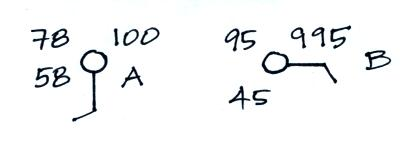 78 100
58 A
95 995 B
45